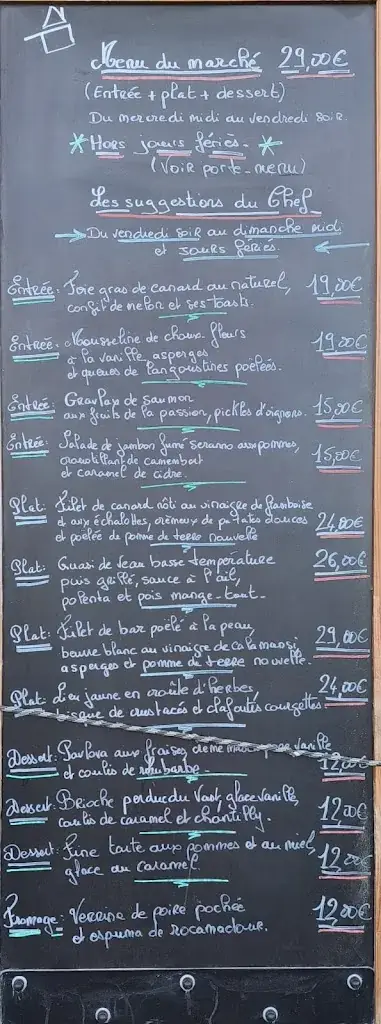 Menu du marché 29,00€
(Entrée + plat + dessert)
Du mercredi midi au vendredi soir.
* Hors jours fériés. *
(Voir porte-menu)
Les suggestions du Chef
→ Du vendredi soir au dimanche midi
et jours fériés. ←
Entrée: Foie gras de canard au naturel, 19,00€
confit de melon et ses toasts.
Entrée: Mousseline de choux-fleurs 19,00€
à la vanille, asperges
et queues de langoustines poêlées.
Entrée: Gravlax de saumon 15,00€
aux fruits de la passion, pickles d'oignons.
Entrée: Salade de jambon fumé serrano aux pommes, 15,00€
croustillant de camembert
et caramel de cidre.
Plat: Filet de canard rôti au vinaigre de framboise
et aux échalottes, crémeux de patates douces 24,00€
et poêlée de pomme de terre nouvelle
Plat: Quasi de veau basse température 26,00€
puis grillé, sauce à l'ail,
polenta et pois mange-tout.
Plat: Filet de bar poêlé à la peau, 29,00€
beurre blanc au vinaigre de calamansi
asperges et pomme de terre nouvelle.
Plat: Lieu jaune en croûte d'herbes, 24,00€
bisque de crustacés et clafoutis courgettes
Dessert: Pavlova aux fraises, vanille
et coulis de rhubarbe. 12,00€
Dessert: Brioche perdue du Vast, glace vanille, 12,00€
coulis de caramel et chantilly.
Dessert: Fine tarte aux pommes et au miel, 12,00€
glace au caramel
Fromage: Verrine de poire pochée 12,00€
et espuma de rocamadour.